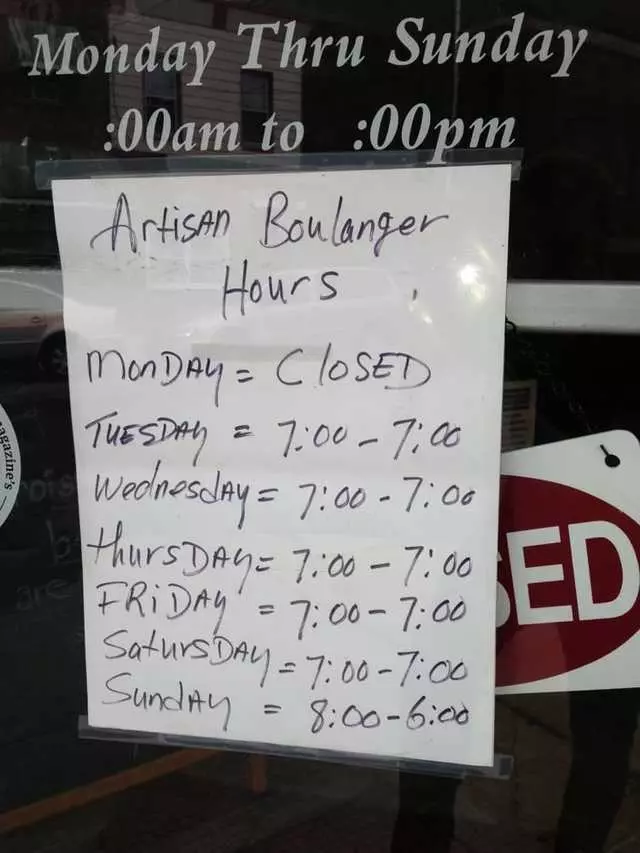 Monday Thru Sunday
:00am to :00pm
Artisan Boulanger
Hours
Monday = Closed
Tuesday = 7:00 - 7:00
Wednesday = 7:00 - 7:00
thursday = 7:00 - 7:00
Friday = 7:00 - 7:00
Satursday = 7:00 - 7:00
Sunday = 8:00 - 6:00
SED
agazine's